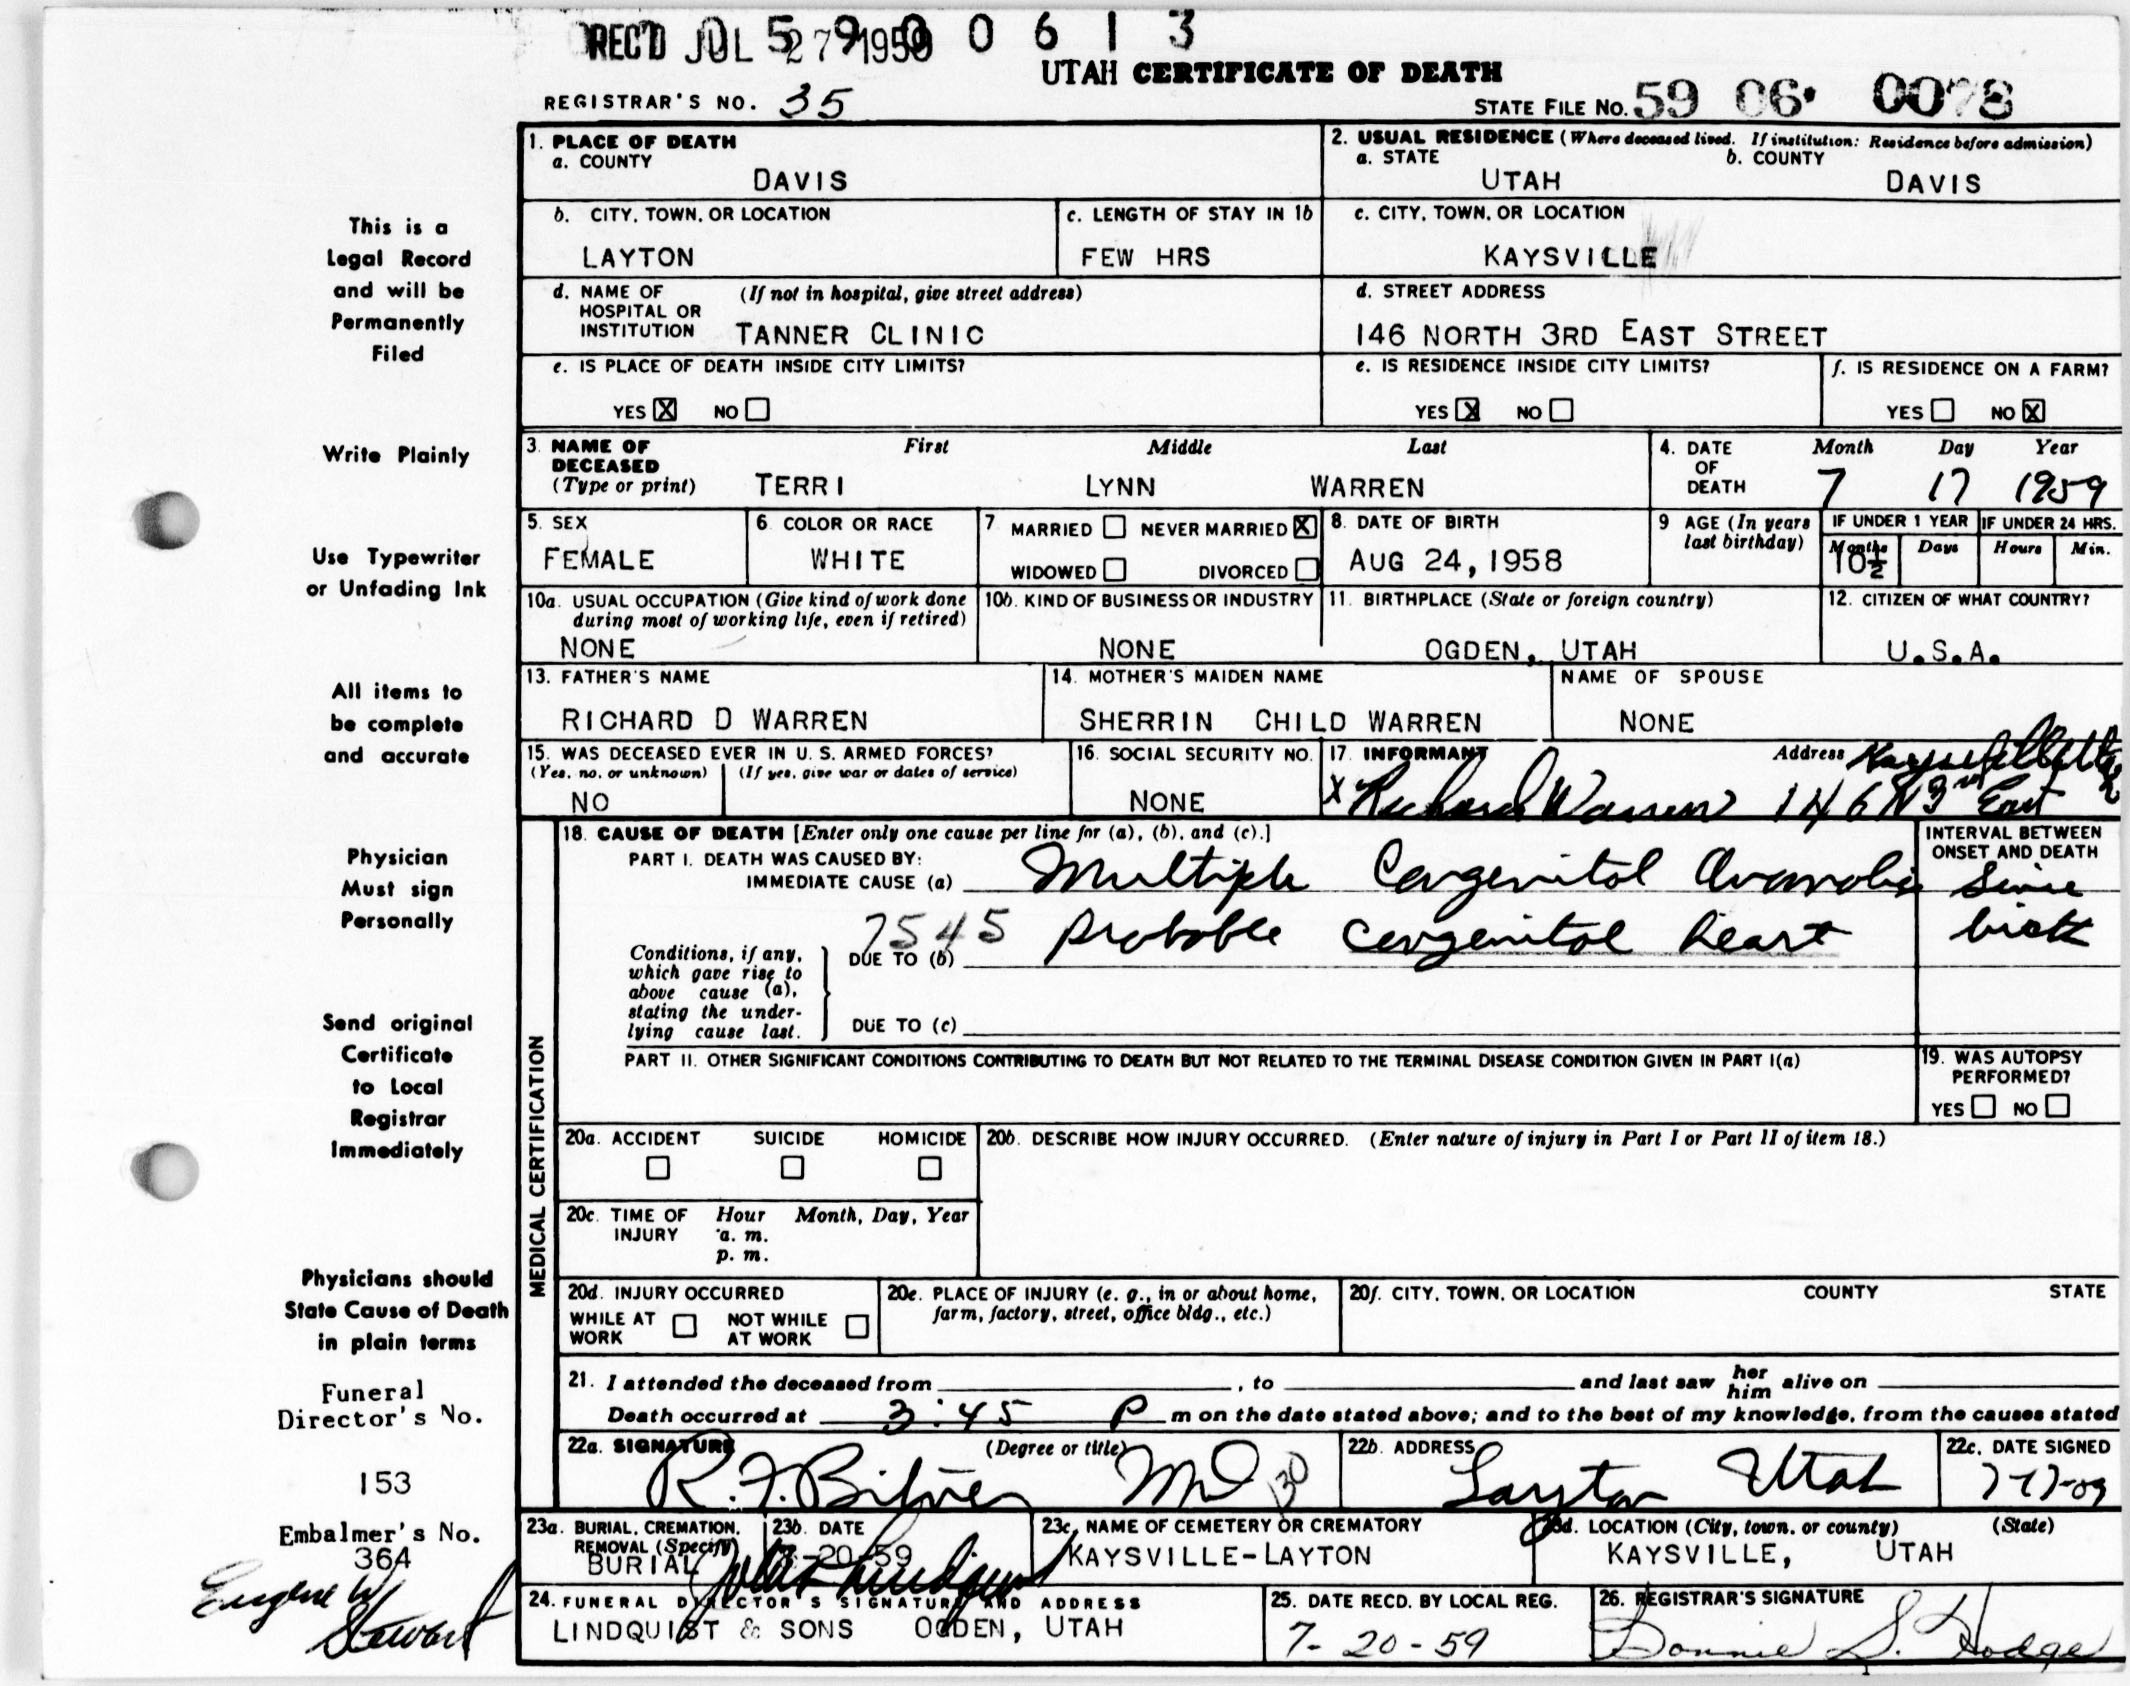 REC'D JUL 27 1959
0 5 9 0 0 6 1 3
UTAH CERTIFICATE OF DEATH
REGISTRAR'S NO. 35
STATE FILE NO. 59 06 0078
This is a
Legal Record
and will be
Permanently
Filed
Write Plainly
Use Typewriter
or Unfading Ink
All items to
be complete
and accurate
Physician
Must sign
Personally
Send original
Certificate
to Local
Registrar
Immediately
Physicians should
State Cause of Death
in plain terms
Funeral
Director's No.
153
Embalmer's No.
364
Eugene W
Stewart
1. PLACE OF DEATH
a. COUNTY
DAVIS
2. USUAL RESIDENCE (Where deceased lived. If institution: Residence before admission)
a. STATE b. COUNTY
UTAH DAVIS
b. CITY, TOWN, OR LOCATION
LAYTON
c. LENGTH OF STAY IN 1b
FEW HRS
c. CITY, TOWN, OR LOCATION
KAYSVILLE
d. NAME OF (If not in hospital, give street address)
HOSPITAL OR
INSTITUTION TANNER CLINIC
d. STREET ADDRESS
146 NORTH 3RD EAST STREET
e. IS PLACE OF DEATH INSIDE CITY LIMITS?
YES X NO
e. IS RESIDENCE INSIDE CITY LIMITS?
YES X NO
f. IS RESIDENCE ON A FARM?
YES NO X
3. NAME OF First Middle Last
DECEASED
(Type or print) TERRI LYNN WARREN
4. DATE Month Day Year
OF
DEATH 7 17 1959
5. SEX
FEMALE
6. COLOR OR RACE
WHITE
7 MARRIED NEVER MARRIED X
WIDOWED DIVORCED
8. DATE OF BIRTH
AUG 24, 1958
9 AGE (In years
last birthday)
IF UNDER 1 YEAR IF UNDER 24 HRS.
Months Days Hours Min.
10½
10a. USUAL OCCUPATION (Give kind of work done
during most of working life, even if retired)
NONE
10b. KIND OF BUSINESS OR INDUSTRY
NONE
11. BIRTHPLACE (State or foreign country)
OGDEN, UTAH
12. CITIZEN OF WHAT COUNTRY?
U.S.A.
13. FATHER'S NAME
RICHARD D WARREN
14. MOTHER'S MAIDEN NAME
SHERRIN CHILD WARREN
NAME OF SPOUSE
NONE
15. WAS DECEASED EVER IN U. S. ARMED FORCES?
(Yes, no, or unknown) (If yes, give war or dates of service)
NO
16. SOCIAL SECURITY NO.
NONE
17. INFORMANT Address Kaysville Utah
X Richard Warren 146 N 3rd East
18. CAUSE OF DEATH [Enter only one cause per line for (a), (b), and (c).]
PART I. DEATH WAS CAUSED BY:
IMMEDIATE CAUSE (a) Multiple Congenital Anomolies
7545 probable congenital heart
Conditions, if any,
which gave rise to
above cause (a),
stating the under-
lying cause last.
DUE TO (b)
DUE TO (c)
INTERVAL BETWEEN
ONSET AND DEATH
Since
birth
PART II. OTHER SIGNIFICANT CONDITIONS CONTRIBUTING TO DEATH BUT NOT RELATED TO THE TERMINAL DISEASE CONDITION GIVEN IN PART I(a)
19. WAS AUTOPSY
PERFORMED?
YES NO
MEDICAL CERTIFICATION
20a. ACCIDENT SUICIDE HOMICIDE
20b. DESCRIBE HOW INJURY OCCURRED. (Enter nature of injury in Part I or Part II of item 18.)
20c. TIME OF Hour Month, Day, Year
INJURY a. m.
p. m.
20d. INJURY OCCURRED
WHILE AT NOT WHILE
WORK AT WORK
20e. PLACE OF INJURY (e. g., in or about home,
farm, factory, street, office bldg., etc.)
20f. CITY, TOWN, OR LOCATION COUNTY STATE
21. I attended the deceased from , to and last saw her him alive on
Death occurred at 3:45 P m on the date stated above; and to the best of my knowledge, from the causes stated
22a. SIGNATURE (Degree or title)
R. F. MD 30
22b. ADDRESS
Layton Utah
22c. DATE SIGNED
7-17-59
23a. BURIAL, CREMATION,
REMOVAL (Specify)
BURIAL
23b. DATE
-20-59
23c. NAME OF CEMETERY OR CREMATORY
KAYSVILLE-LAYTON
23d. LOCATION (City, town, or county) (State)
KAYSVILLE, UTAH
24. FUNERAL DIRECTOR'S SIGNATURE AND ADDRESS
LINDQUIST & SONS OGDEN, UTAH
25. DATE RECD. BY LOCAL REG.
7-20-59
26. REGISTRAR'S SIGNATURE
Bonnie S. Hodge